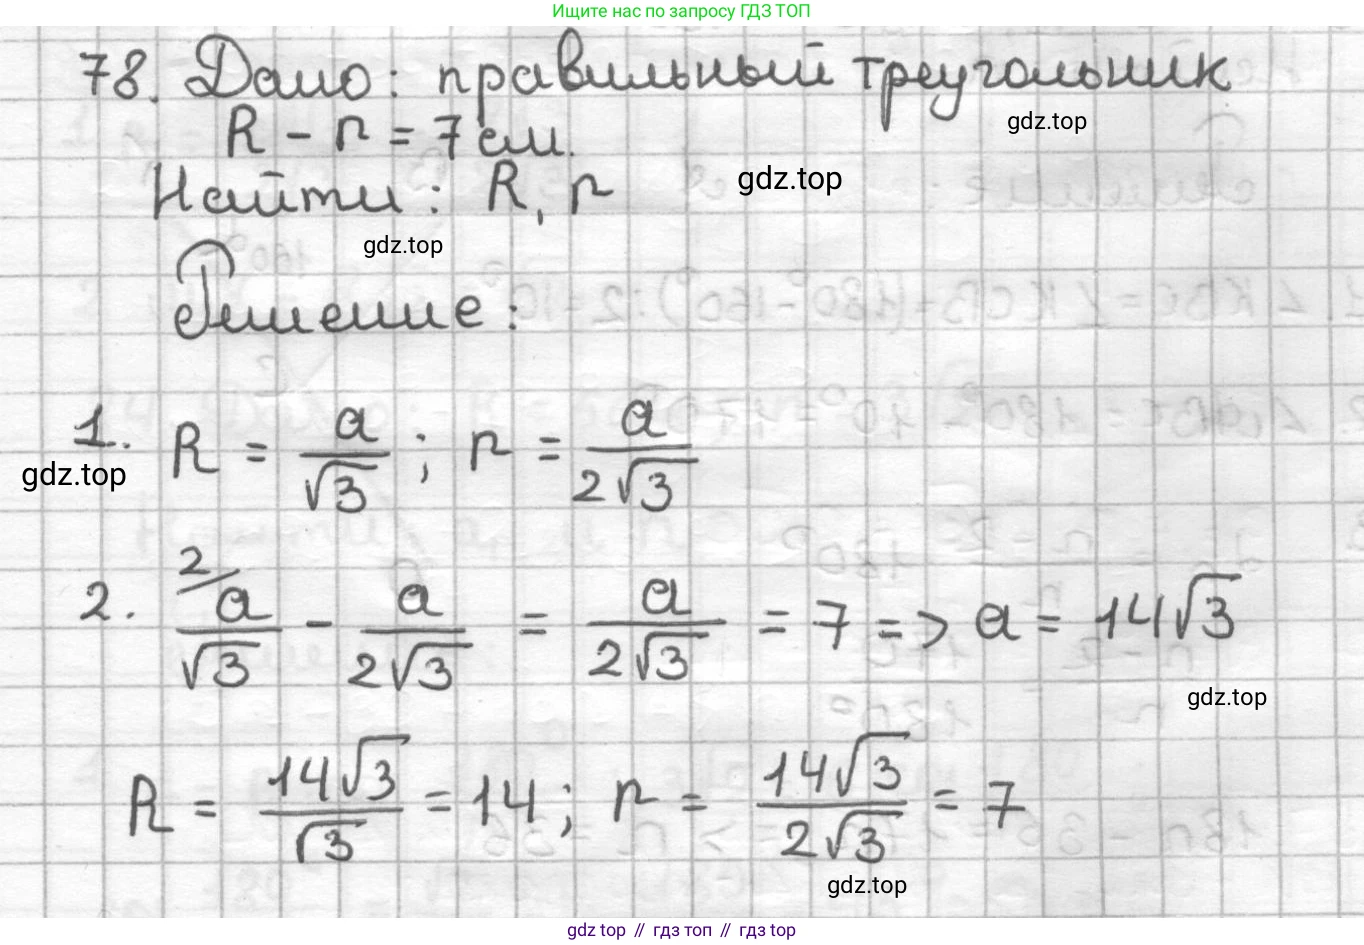 Ищите нас по запросу ГДЗ ТОП
78. Дано: правильный треугольник
gdz.top
R - r = 7 см.
gdz.top
Найти: R, r
gdz.top
Решение:
1. R = a/√3 ; r = a/2√3
gdz.top
2. ²⁄a/√3 - a/2√3 = a/2√3 = 7 => a = 14√3
gdz.top
R = 14√3/√3 = 14; r = 14√3/2√3 = 7
gdz.top
gdz.top // гдз топ // гдз top